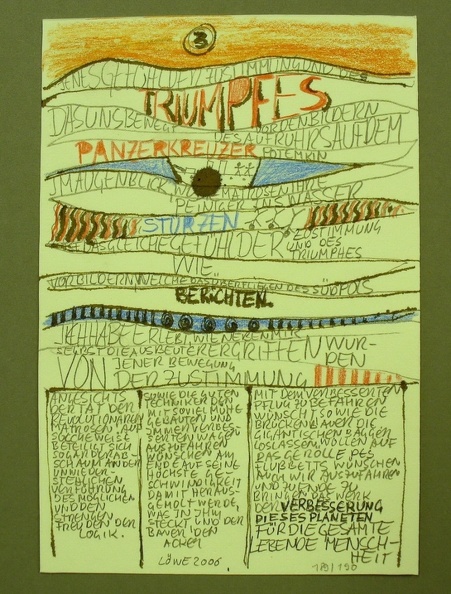 3
JENES GEFÜHL DER ZUSTIMMUNG UND DES
TRIUMPFES
DAS UNS BEWEGT VOR DEN BILDERN
DES AUFRUHRS AUF DEM
PANZERKREUZER POTEMKIN
IM AUGENBLICK IHRE
PEINIGER INS WASSER
STÜRZEN
DAS GLEICHE GEFÜHL DER ZUSTIMMUNG
UND DES
TRIUMPHES
WIE
VOR BILDERN WELCHE DAS DES SÜDPOLS
BERICHTEN.
ICH HABE ERLEBT, WIE NEBEN MIR
SELBST DIE AUSBEUTER ERGRIFFEN WUR-
DEN
JENER BEWEGUNG
VON DER ZUSTIMMUNG
ANGESICHTS
DER TAT DER
REVOLUTIONÄREN
MATROSEN: AUF
SOLCHE WEISE
BETEILIGT SICH
SOGAR DER AB-
SCHAUM AN DER
UNWIDER-
STEHLICHEN
VERFÜHRUNG
DES MÖGLICHEN
UND DEN
STRENGEN
FREUDEN DER
LOGIK.
SOWIE DIE GUTEN
TECHNIKER DIE
MIT SO VIEL MÜHE
GEBAUTEN UND
IMMER VERBES-
SERTEN WAGEN
AUSZUFAHREN
WÜNSCHEN AM
ENDE AUF SEINE
HÖCHSTE GE-
SCHWINDIGKEIT
DAMIT HERAUS-
GEHOLT WERDE,
WAS IN IHM
STECKT UND DER
BAUER DEN
ACKER
MIT DEM VERBESSERTEN
PFLUG ZU BEFAHREN
WÜNSCHT, SOWIE DIE
BRÜCKENBAUER DIE
GIGANTISCHEN BAGGER
LOSLASSEN WOLLEN AUF
DAS GERÖLLE DES
FLUßBETTS, WÜNSCHEN
AUCH WIR AUSZUFAHREN
UND ZU ENDE ZU
BRINGEN DAS WERK
DER VERBESSERUNG
DIESES PLANETEN
FÜR DIE GESAMTE
LEBENDE MENSCH-
HEIT
LÖWE 2006.
/190